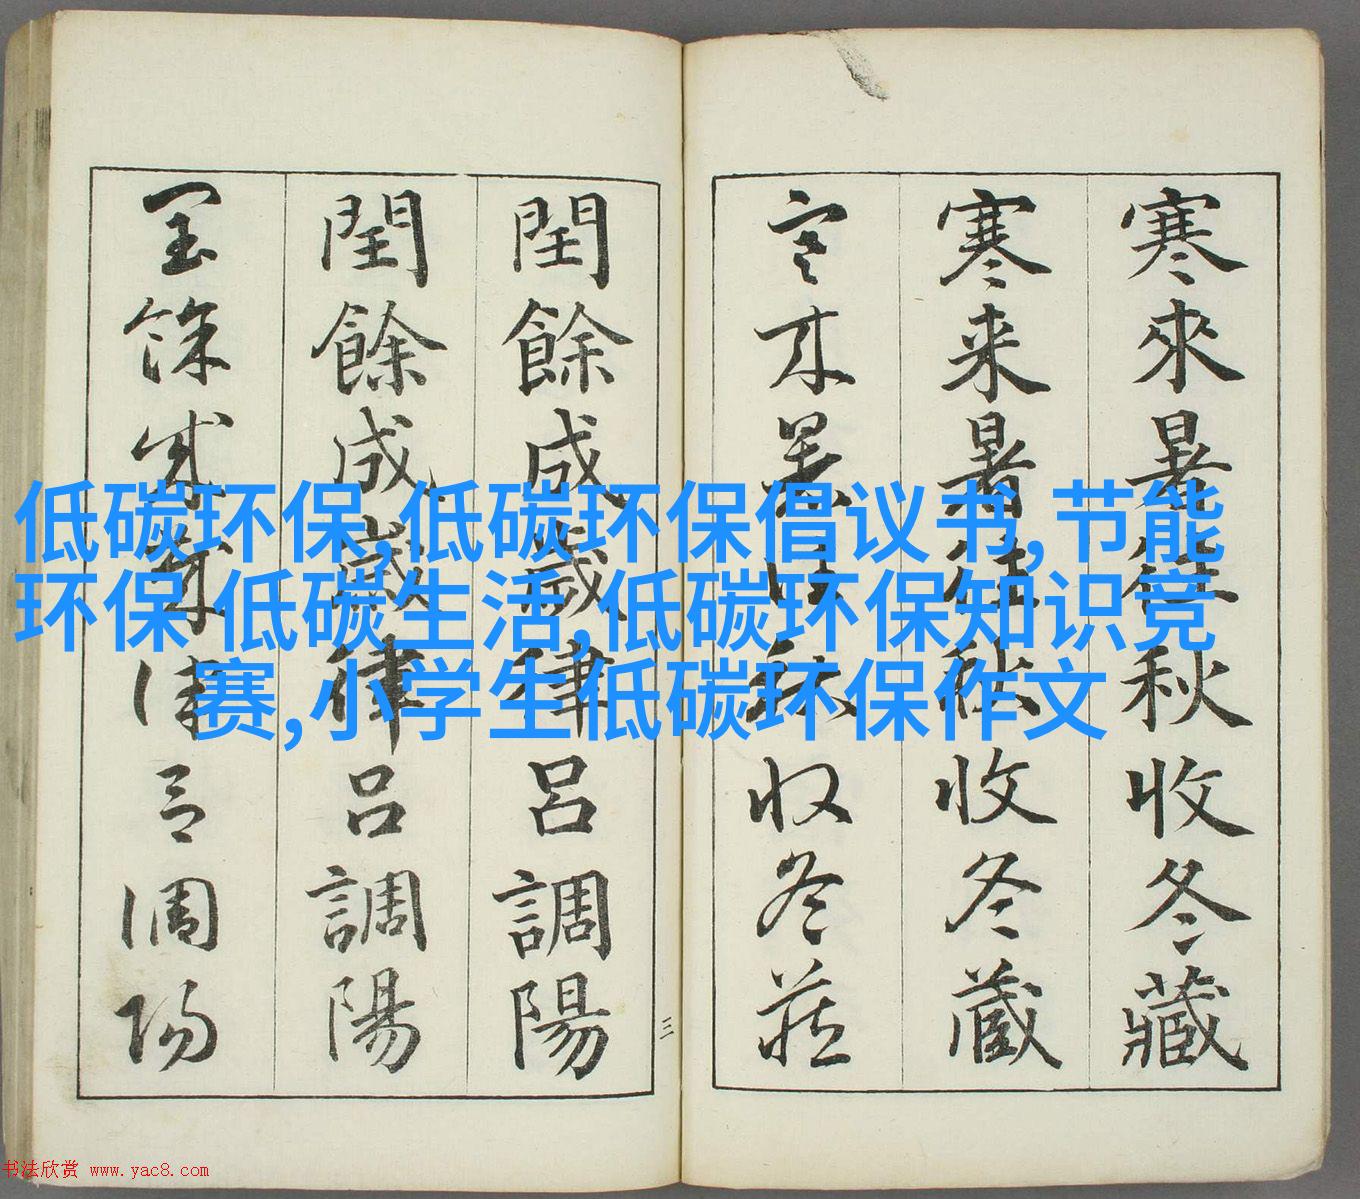 寒來暑往秋收冬藏
寒来暑往秋收冬蔵
寒来暑往秋收冬蔵
三
閏餘成歲律呂調陽
閏餘成歲律呂調陽
閏餘成歲律呂調陽
低碳环保,低碳环保倡议书,节能
环保 低碳生活,低碳环保知识竞
赛,小学生低碳环保作文
书法欣赏 www.yac8.com